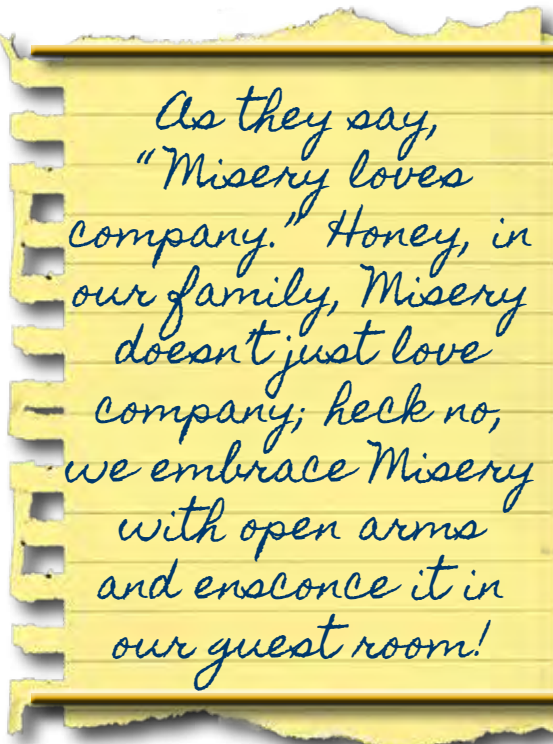 As they say,
"Misery loves
company." Honey, in
our family, Misery
doesn't just love
company; heck no,
we embrace Misery
with open arms
and ensconce it in
our guest room!